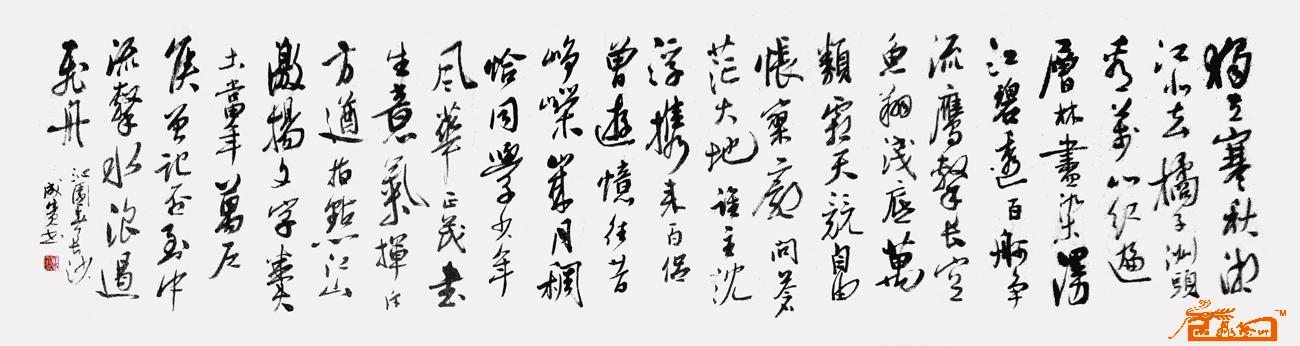 獨立寒秋湘
江北去橘子洲頭
看萬山红遍
層林盡染漫
江碧透百舸争
流鷹擊长空
魚翔淺底萬
類霜天競自由
悵寥廓問蒼
茫大地誰主沈
浮攜来百侣
曾遊憶往昔
峥嶸歲月稠
恰同學少年
風華正茂書
生意氣揮斥
方遒指點江山
激揚文字糞
土當年萬户
侯曾记否到中
流擊水浪遏
飛舟
沁園春长沙